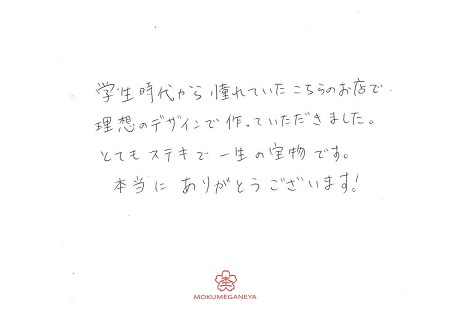 学生時代から憧れていたこちらのお店で
理想のデザインで作っていただきました。
とてもステキで一生の宝物です。
本当にありがとうございます!
MOKUMEGANEYA